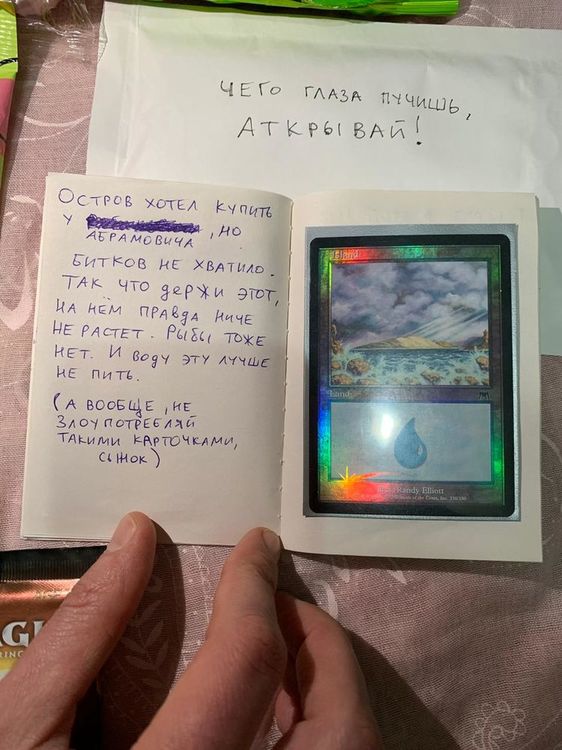 ЧЕГО ГЛАЗА ПУЧИШЬ,
АТКРЫВАЙ!
ОСТРОВ ХОТЕЛ КУПИТЬ
У , НО
АБРАМОВИЧА
БИТКОВ НЕ ХВАТИЛО.
ТАК ЧТО ДЕРЖИ ЭТОТ,
НА НЁМ ПРАВДА НИЧЕ
НЕ РАСТЕТ. РЫБЫ ТОЖЕ
НЕТ. И ВОДУ ЭТУ ЛУЧШЕ
НЕ ПИТЬ.
(А ВООБЩЕ, НЕ
ЗЛОУПОТРЕБЛЯЙ
ТАКИМИ КАРТОЧКАМИ,
СЫЖОК)
Island
Land
Randy Elliott